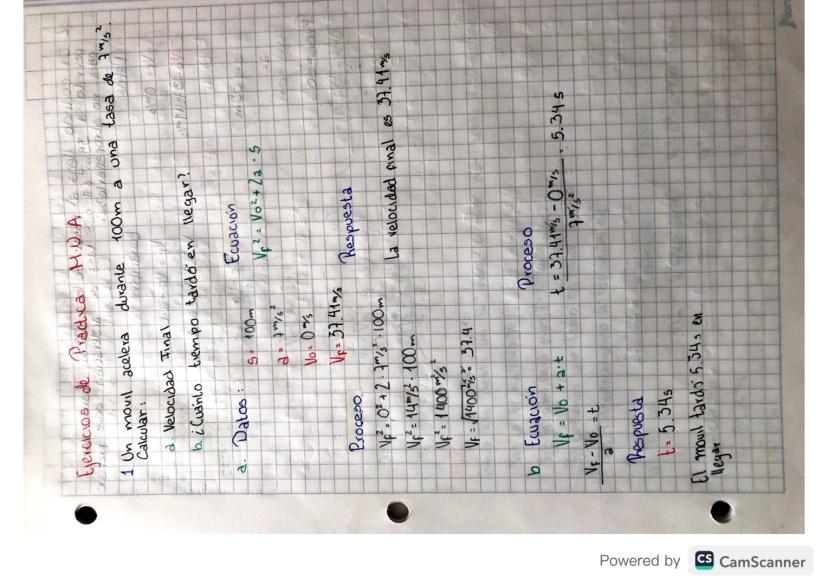 Ejercicios de Práctica M.U.A
1 Un movil acelera durante 100m a una tasa de 7m/s².
Calcular:
a Velocidad Final
b. ¿Cuánto tiempo tardó en llegar?
a. Datos:
s = 100m
a = 7m/s²
Vo = 0m/s
VF = 37.41m/s
Ecuación
VF² = Vo² + 2a · s
Proceso
VF² = 0² + 2 · 7m/s² · 100m
VF² = 14m/s² · 100m
VF² = 1400m²/s²
VF = √1400m²/s² = 37.4
Respuesta
La velocidad final es 37.41m/s
b Ecuación
VF = Vo + a·t
VF - Vo / a = t
Proceso
t = 37.41m/s - 0m/s / 7m/s² = 5.34s
Respuesta
t = 5.34s
El movil tardó 5.34s en
llegar
Powered by CS CamScanner